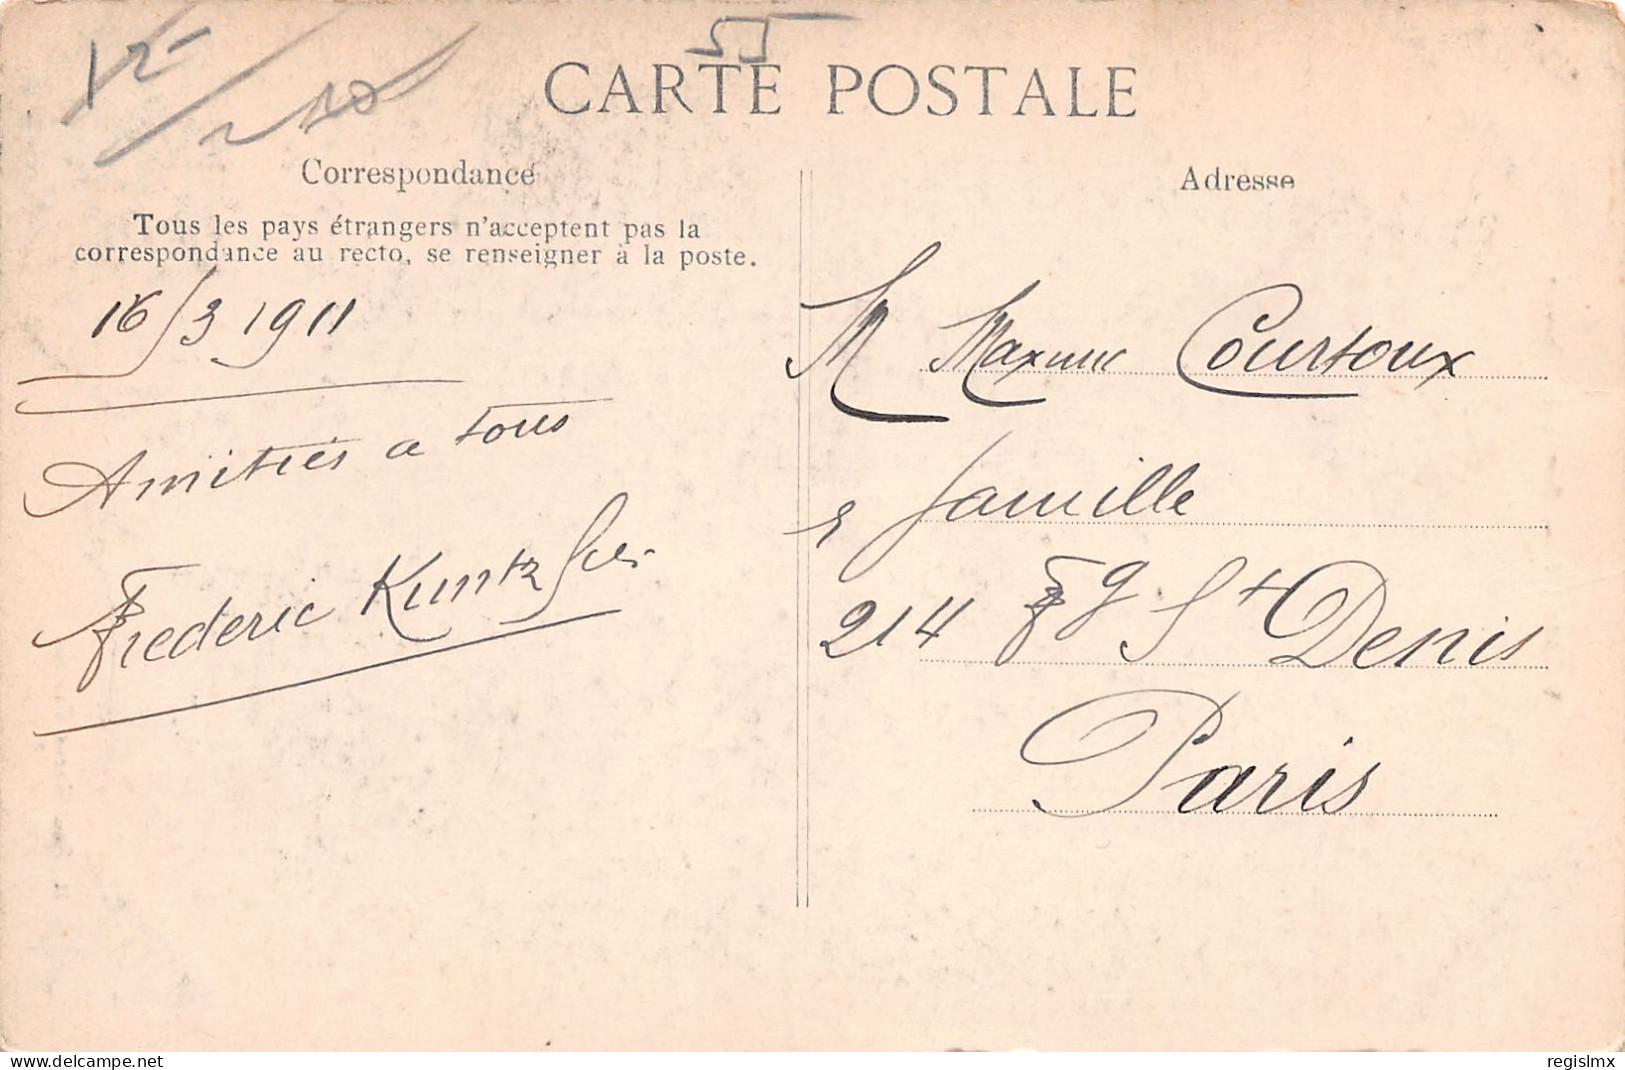 12-
55
CARTE POSTALE
Correspondance
Tous les pays étrangers n'acceptent pas la
correspondance au recto, se renseigner à la poste.
16/3 1911
Amitiés a tous
Frederic Kuntz
Adresse
M Maxime Courtoux
famille
214 Fg St Denis
Paris
www.delcampe.net
regislmx